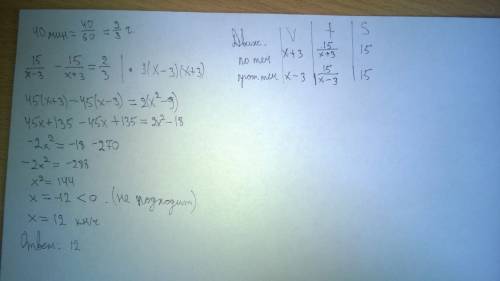 40 мин = 40/60 = 2/3 ч.
15/(x-3) - 15/(x+3) = 2/3 | · 3(x-3)(x+3)
45(x+3) - 45(x-3) = 2(x²-9)
45x + 135 - 45x + 135 = 2x² - 18
-2x² = -18 - 270
-2x² = -288
x² = 144
x = -12 < 0. (не подходит)
x = 12 км/ч
Ответ: 12
Движ. | V | t | S
по теч | x+3 | 15/(x+3) | 15
прот теч | x-3 | 15/(x-3) | 15